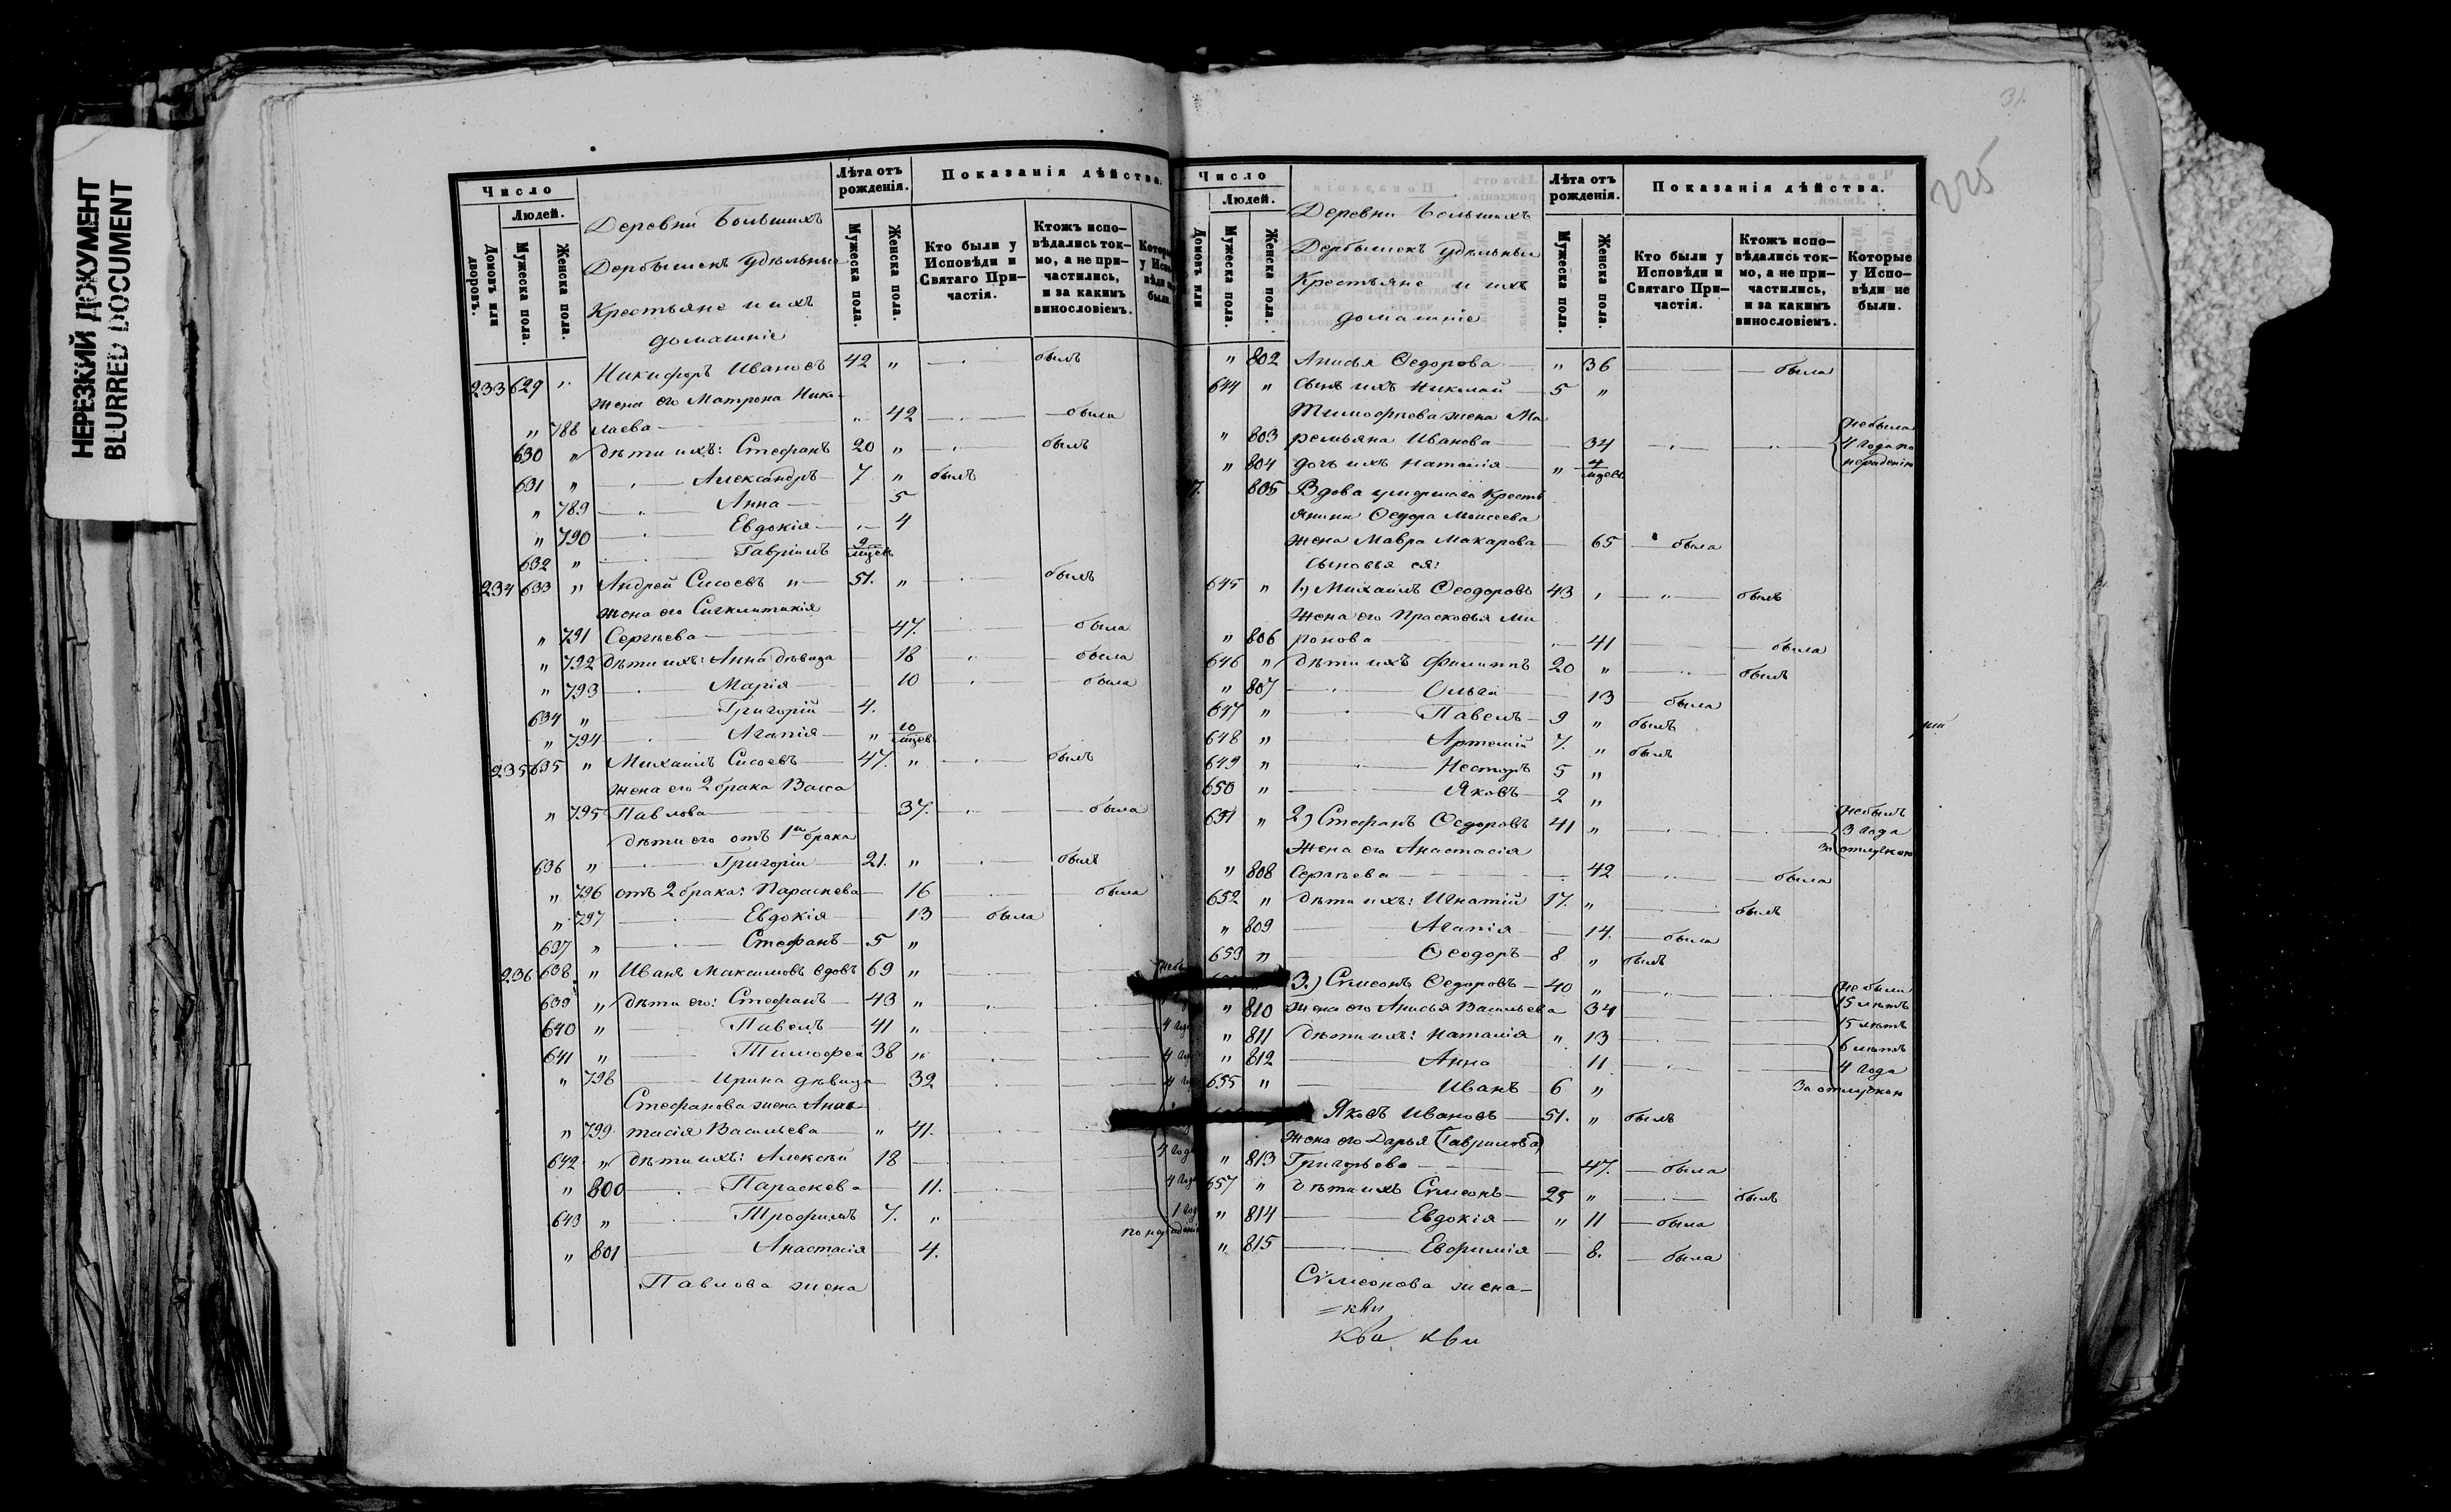 НЕРЕЗКИЙ ДОКУМЕНТ
BLURRED DOCUMENT
Число
Людей.
Домовъ или дворовъ.
Мужеска пола.
Женска пола.
Деревни Большихъ
Дербышекъ удѣльные
Крестьяне и ихъ
домашніе
Лѣта отъ рожденія.
Мужеска пола.
Женска пола.
Показанія дѣйства.
Кто были у Исповѣди и Святаго Причастія.
Ктожъ исповѣдались токмо, а не причастились, и за какимъ винословіемъ.
233 629 " Никифоръ Ивановъ 42 " былъ
жена его Матрона Нико-
" 788 лаева 42 была
630 " дѣти ихъ: Стефанъ 20 " былъ
631 " Александръ 7 " былъ
" 789 Анна 5
" 790 Евдокія 4
632 " Гавріилъ 9 мцевъ
234 633 " Андрей Сисоевъ 51. " былъ
жена его Сигклитикія
" 791 Сергѣева 47. была
" 792 дѣти ихъ: Анна дѣвица 18 была
" 793 Марія 10 была
634 " Григорій 4.
" 794 Агапія " 10 мцев.
235 635 " Михаилъ Сисоевъ 47. " былъ
жена его 2 брака Васса
" 795 Павлова 37. была
дѣти его отъ 1го брака
636 " Григорій 21. " былъ
" 796 отъ 2 брака: Параскева 16 была
" 797 Евдокія 13 была
637 " Стефанъ 5 "
236 638 " Иванъ Максимовъ вдовъ 69 "
639 " дѣти его: Стефанъ 43 "
640 " Павелъ 41 " 4 год
641 " Тимофей 38 " 4
" 798 Ирина дѣвица 32 4
Стефанова жена Анас-
" 799 тасія Васильева " 41.
642 " дѣти ихъ: Алексѣй 18 4 год
" 800 Параскева 11. 4
643 " Трофимъ 7. " 1 год
" 801 Анастасія 4.
Павлова жена
31.
225
Число
Людей.
Домовъ или
Мужеска пола.
Женска пола.
Деревни Большихъ
Дербышекъ удѣльные
Крестьяне и ихъ
домашніе
Лѣта отъ рожденія.
Мужеска пола.
Женска пола.
Показанія дѣйства.
Кто были у Исповѣди и Святаго Причастія.
Ктожъ исповѣдались токмо, а не причастились, и за какимъ винословіемъ.
Которые у Исповѣди не были.
" 802 Анисья Ѳедорова " 36 была
644 " сынъ ихъ Николай 5 "
Тимофѣева жена Ма
" 803 ремьяна Иванова 34 небыла 4 года по нераденію
" 804 дочь ихъ Наталія " 4 мцев.
805 Вдова умершаго кресть
янина Ѳедора Моисеева
жена Мавра Макарова 65 была
сыновья ея:
645 " 1) Михаилъ Ѳеодоровъ 43 былъ
жена его Прасковья Ми
" 806 ронова 41 была
646 " дѣти ихъ Филиппъ 20 " былъ
" 807 Ольга 13 была
647 " Павелъ 9 " былъ
648 " Артемій 7. " былъ
649 " Несторъ 5 "
650 " Яковъ 2 "
651 " 2) Стефанъ Ѳедоровъ 41 " небылъ 3 года за отлучкою
жена его Анастасія
" 808 Сергѣева 42 была
652 " дѣти ихъ: Игнатій 17. " былъ
" 809 Агапія 14. была
653 " Ѳеодоръ 8 " былъ
3.) Сѵмеонъ Ѳедоровъ 40 " не были 15 лѣтъ
" 810 жена его Анисья Васильева 34 15 лѣтъ
" 811 дѣти ихъ: Наталія " 13 6 лѣтъ
" 812 Анна 11 4 года
655 " Иванъ 6 " За отлучкою
Яковъ Ивановъ 51. " былъ
жена его Дарья (Гаврилова)
" 813 Григорьева 47. была
657 " дѣти ихъ Сѵмеонъ 25 " былъ
" 814 Евдокія " 11 была
" 815 Евфимія 8. была
Сѵмеонова жена